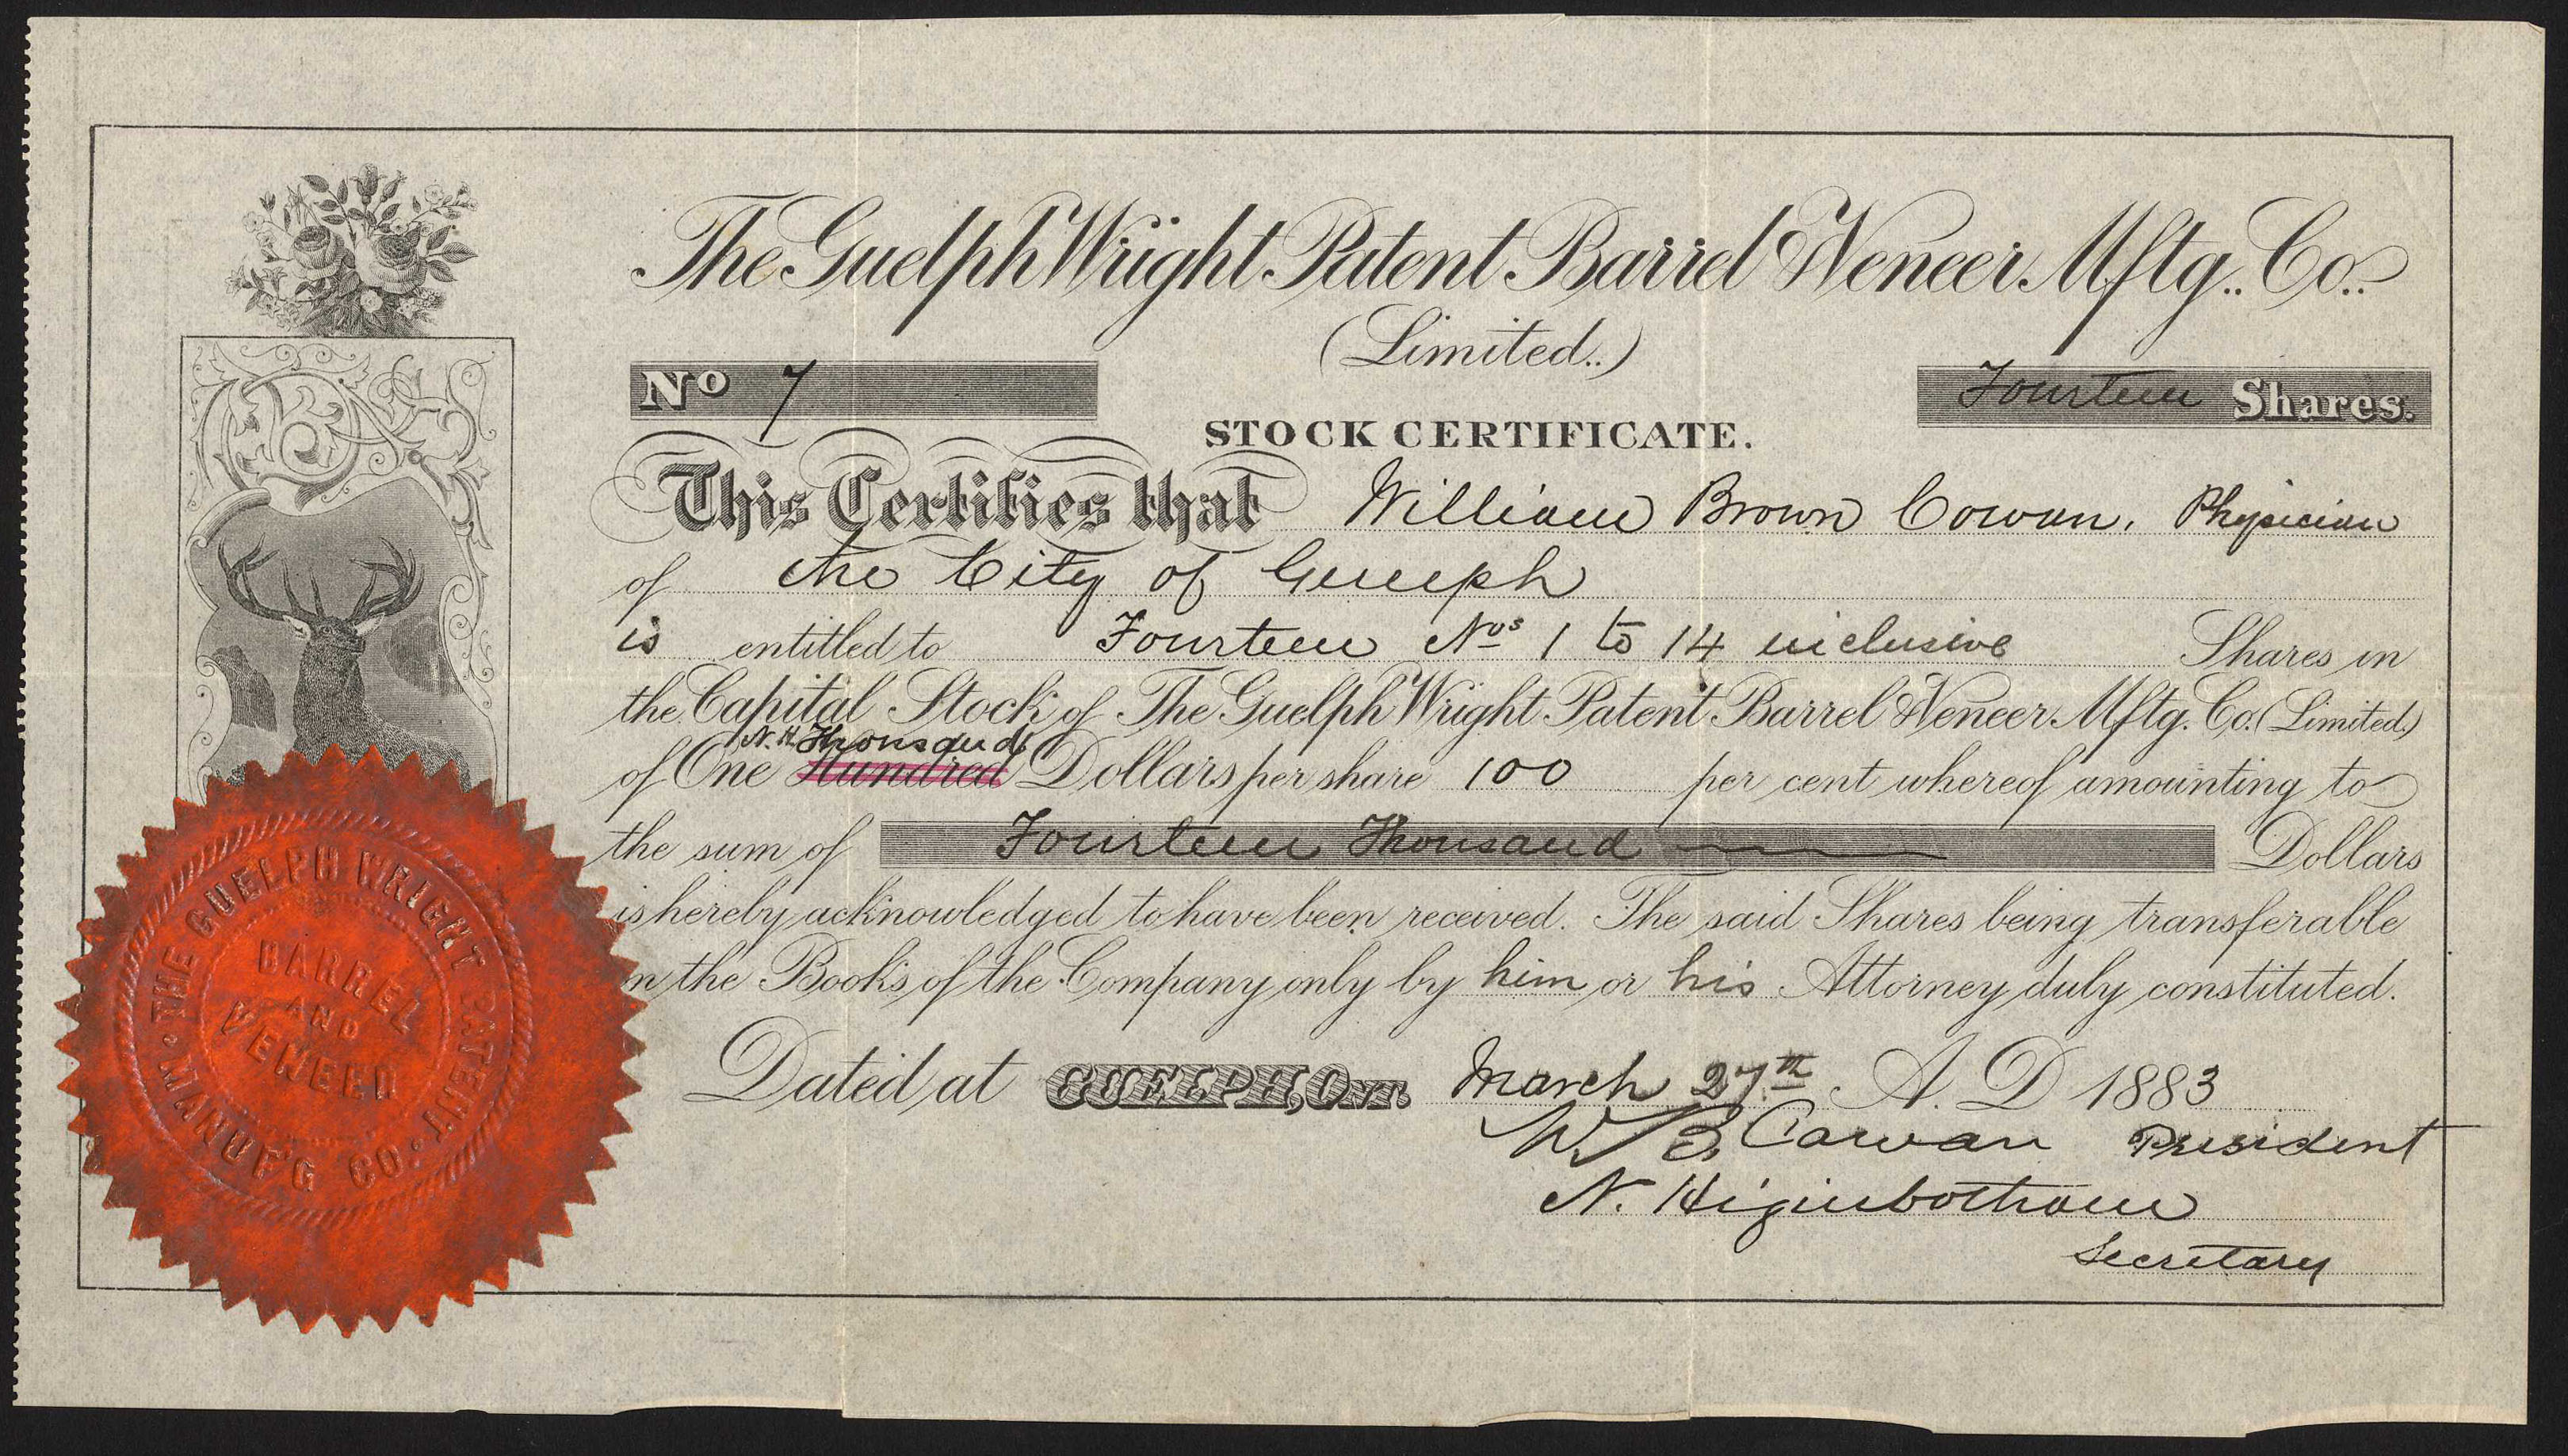 The Guelph Wright Patent Barrel & Veneer Mftg.. Co..
(Limited..)
No 7
Fourteen Shares.
STOCK CERTIFICATE.
This Certifies that William Brown Cowan, Physician
of the City of Guelph
is entitled to Fourteen Nos 1 to 14 inclusive Shares in
the Capital Stock of The Guelph Wright Patent Barrel & Veneer Mftg. Co. (Limited)
N. H. Thousand
of One Hundred Dollars per share 100 per cent whereof amounting to
the sum of Fourteen Thousand Dollars
is hereby acknowledged to have been received. The said Shares being transferable
in the Books of the Company only by him or his Attorney duly constituted.
Dated at GUELPH, ONT. March 27th A. D 1883
W B Cowan President
N. Higinbotham
Secretary
THE GUELPH WRIGHT PATENT
BARREL
AND
VENEER
MANUF'G CO.